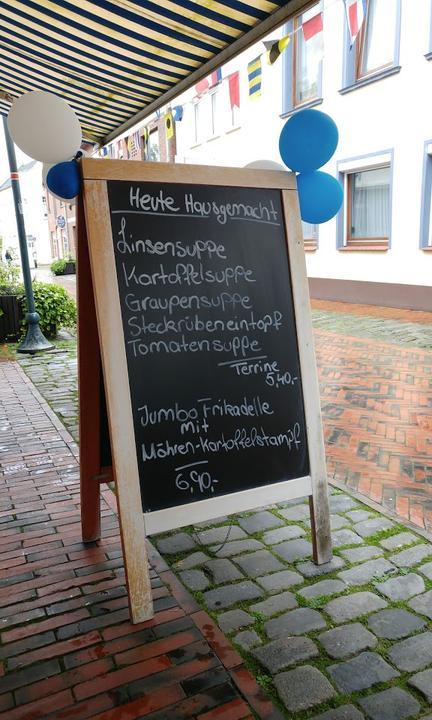 Heute Hausgemacht
Linsensuppe
Kartoffelsuppe
Graupensuppe
Steckrübeneintopf
Tomatensuppe
Terrine
5,40,-
Jumbo Frikadelle
mit
Möhren-Kartoffelstampf
6,90,-